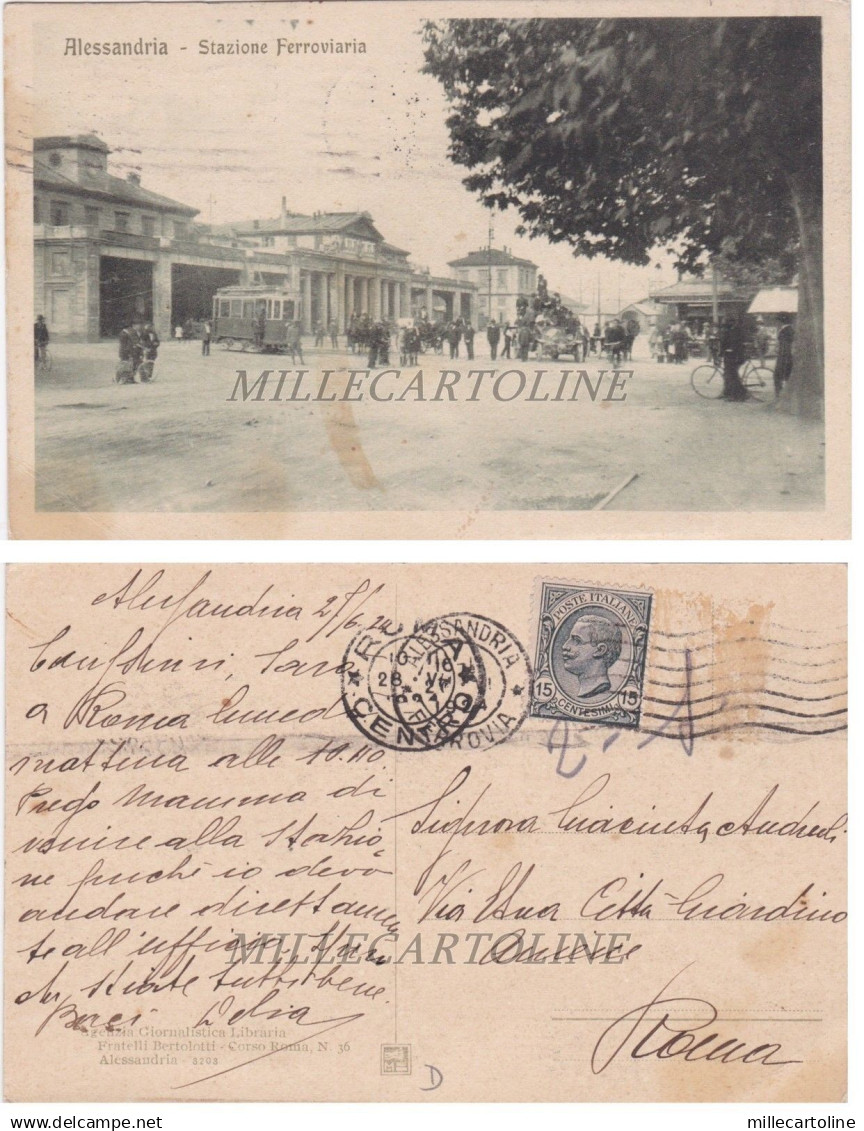 Alessandria - Stazione Ferroviaria
MILLECARTOLINE
Alessandria
a Roma
mattina alle 10.40
Prego Mamma di
venire alla Stazio
ne perchè io devo
andare direttamen
te all'ufficio
state tutti bene.
Baci
ROMA
CENTRO
ALESSANDRIA
FERROVIA
POSTE ITALIANE
15 15
CENTESIMI
Signora Giacinta Andreoli
Via Una Città Giardino
Aniene
Roma
MILLECARTOLINE
Agenzia Giornalistica Libraria
Fratelli Bertolotti - Corso Roma, N. 36
Alessandria - 8208
D
Delcampe.net
millecartoline